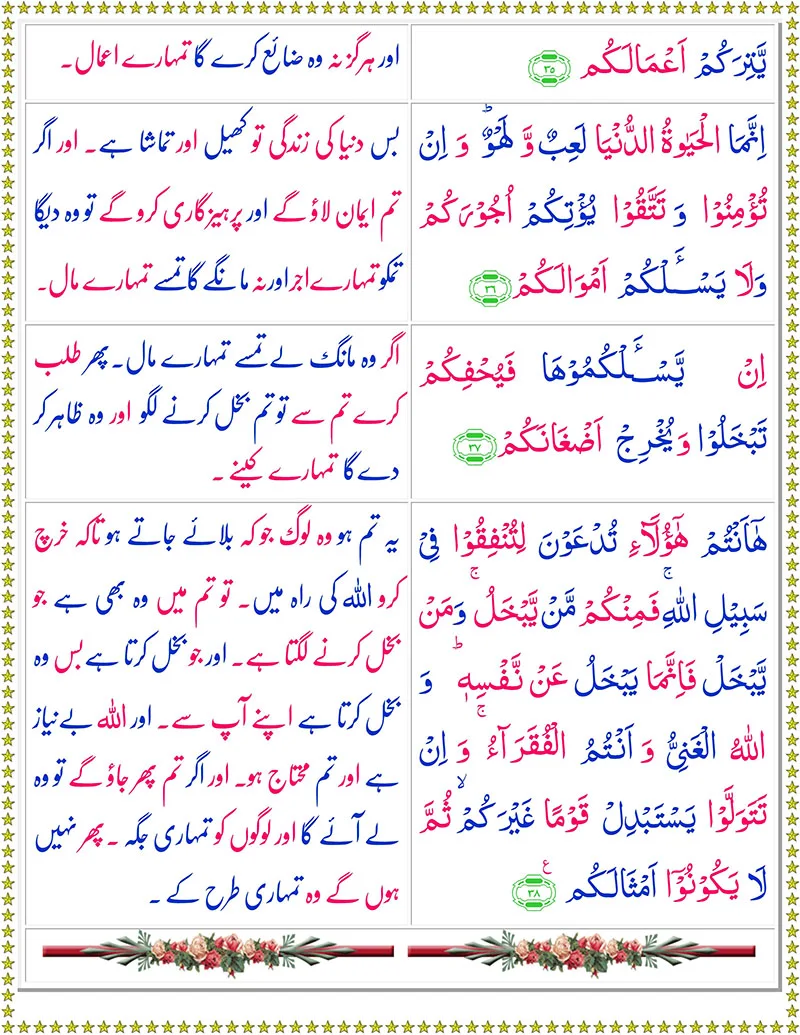 يَّتِرَكُمْ اَعْمَالَكُم ۝٣٥
اور ہرگز نہ وہ ضائع کرے گا تمہارے اعمال۔
اِنَّمَا الْحَيٰوةُ الدُّنْيَا لَعِبٌ وَّ لَهْوٌ ؕ وَ اِنْ
تُؤْمِنُوْا وَ تَتَّقُوْا يُؤْتِكُمْ اُجُوْرَكُمْ
وَلَا يَسْـَٔـلْكُمْ اَمْوَالَكُمْ ۝٣٦
بس دنیا کی زندگی تو کھیل اور تماشا ہے۔ اور اگر
تم ایمان لاؤ گے اور پرہیزگاری کرو گے تو وہ دیگا
تمکو تمہارے اجر اور نہ مانگے گا تمسے تمہارے مال۔
اِنْ يَّسْـَٔـلْكُمُوْهَا فَيُحْفِكُمْ
تَبْخَلُوْا وَيُخْرِجْ اَضْغَانَكُمْ ۝٣٧
اگر وہ مانگ لے تمسے تمہارے مال۔ پھر طلب
کرے تم سے تو تم بخل کرنے لگو اور وہ ظاہر کر
دے گا تمہارے کینے ۔
هٰۤاَنْتُمْ هٰۤؤُلَآءِ تُدْعَوْنَ لِتُنْفِقُوْا فِىْ
سَبِيْلِ اللّٰهِ ۚ فَمِنْكُمْ مَّنْ يَّبْخَلُ ۚ وَمَنْ
يَّبْخَلْ فَاِنَّمَا يَبْخَلُ عَنْ نَّفْسِهٖ ؕ وَ
اللّٰهُ الْغَنِىُّ وَ اَنْتُمُ الْفُقَرَآءُ ۚ وَ اِنْ
تَتَوَلَّوْا يَسْتَبْدِلْ قَوْمًا غَيْرَكُمْ ۙ ثُمَّ
لَا يَكُوْنُوْۤا اَمْثَالَكُم ۝٣٨ ع
یہ تم ہو وہ لوگ جو کہ بلائے جاتے ہو تاکہ خرچ
کرو اللہ کی راہ میں۔ تو تم میں وہ بھی ہے جو
بخل کرنے لگتا ہے۔ اور جو بخل کرتا ہے بس وہ
بخل کرتا ہے اپنے آپ سے۔ اور اللہ بے نیاز
ہے اور تم محتاج ہو۔ اور اگر تم پھر جاؤ گے تو وہ
لے آئے گا اور لوگوں کو تمہاری جگہ ۔ پھر نہیں
ہوں گے وہ تمہاری طرح کے ۔